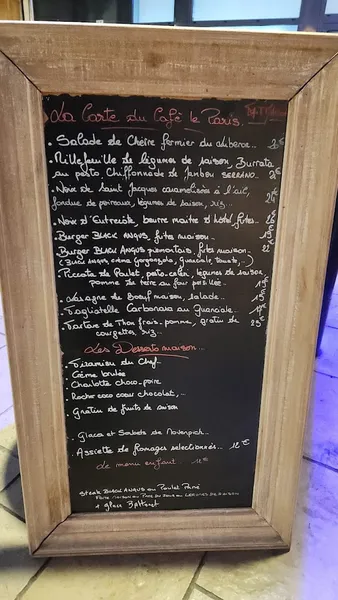 La Carte du Café le Paris.
. Salade de Chèvre fermier du
. Millefeuille de légumes de saison, Burrata
au pesto, Chiffonnade de Jambon SERRANO..
. Noix de Saint Jacques caramélisées à l'ail,
fondue de poireaux, légumes de saison, riz...
. Noix d'Entrecôte, beurre maitre d'hôtel, frites..
. Burger BLACK ANGUS, frites maison..
. Burger BLACK ANGUS piemontais, frites maison..
(BLACK ANGUS, crème Gorgonzola, Guanciale, Tomate, ...)
. Piccata de Poulet, pesto, légumes de saison
pomme de terre au four persillée..
. Lasagne de Boeuf maison, salade..
. Tagliatelle Carbonara au Guanciale..
. Tartare de Thon frais, pomme, gratin de
courgettes, riz...
Les Desserts maison...
. Tiramisu du Chef
. Crème brulée
. Charlotte choco-poire
. Rocher coco coeur chocolat,
. Gratin de fruits de saison
. Glaces et Sorbets de Movenpick..
. Assiette de fromages sélectionnés... 12€
Le menu enfant. 12€
Steak BLACK ANGUS ou Poulet Pané
Frites maison ou
+ glace